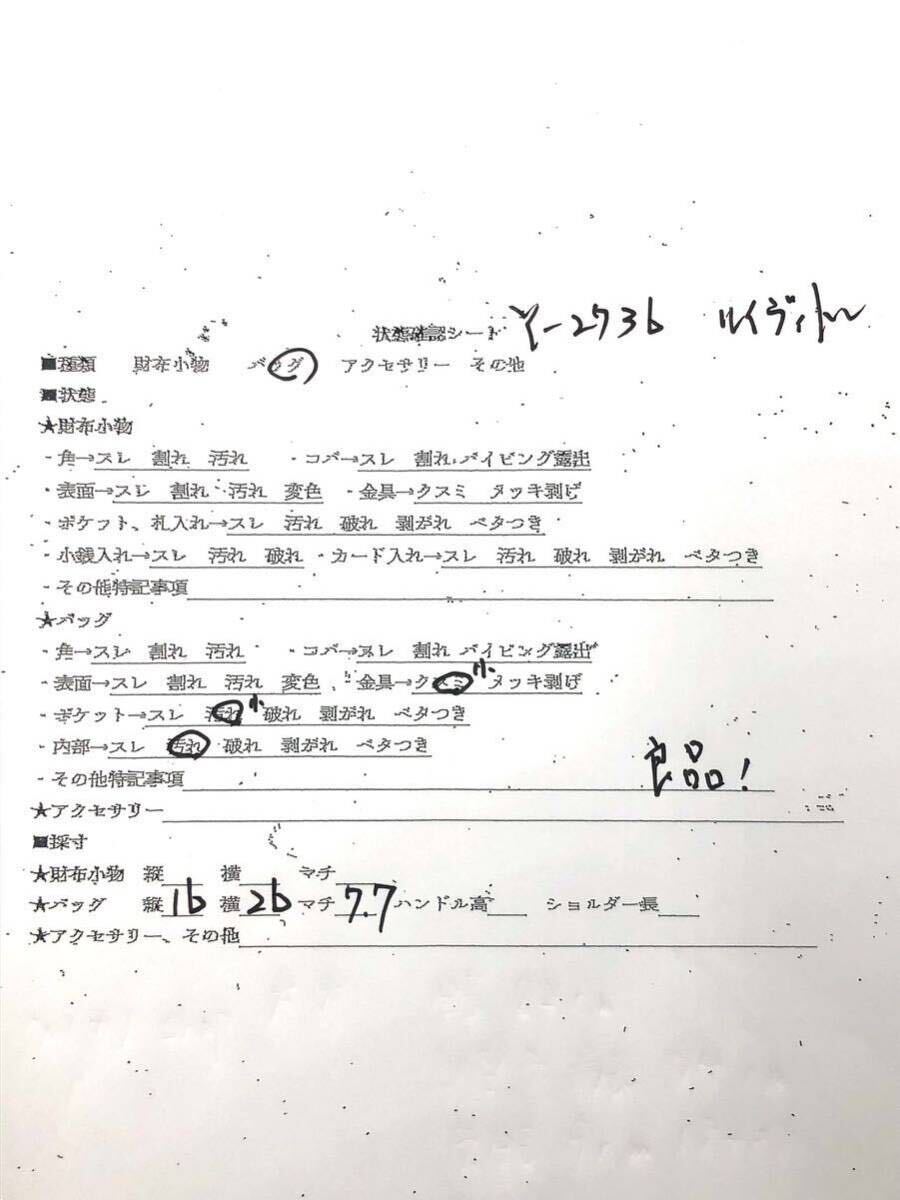 状態確認シート Y-2736 ルイヴィトン
■種類 財布小物 バッグ アクセサリー その他
■状態
★財布小物
・角→スレ 割れ 汚れ ・コバ→スレ 割れ パイピング露出
・表面→スレ 割れ 汚れ 変色 ・金具→クスミ メッキ剥げ
・ポケット、札入れ→スレ 汚れ 破れ 剥がれ ベタつき
・小銭入れ→スレ 汚れ 破れ ・カード入れ→スレ 汚れ 破れ 剥がれ ベタつき
・その他特記事項
★バッグ
・角→スレ 割れ 汚れ ・コバ→スレ 割れ パイピング露出
・表面→スレ 割れ 汚れ 変色 金具→クスミ 小 メッキ剥げ
・ポケット→スレ 汚れ 小 破れ 剥がれ ベタつき
・内部→スレ 汚れ 破れ 剥がれ ベタつき
・その他特記事項 良品!
★アクセサリー
■採寸
★財布小物 縦 横 マチ
★バッグ 縦16 横26 マチ7.7 ハンドル高 ショルダー長
★アクセサリー、その他